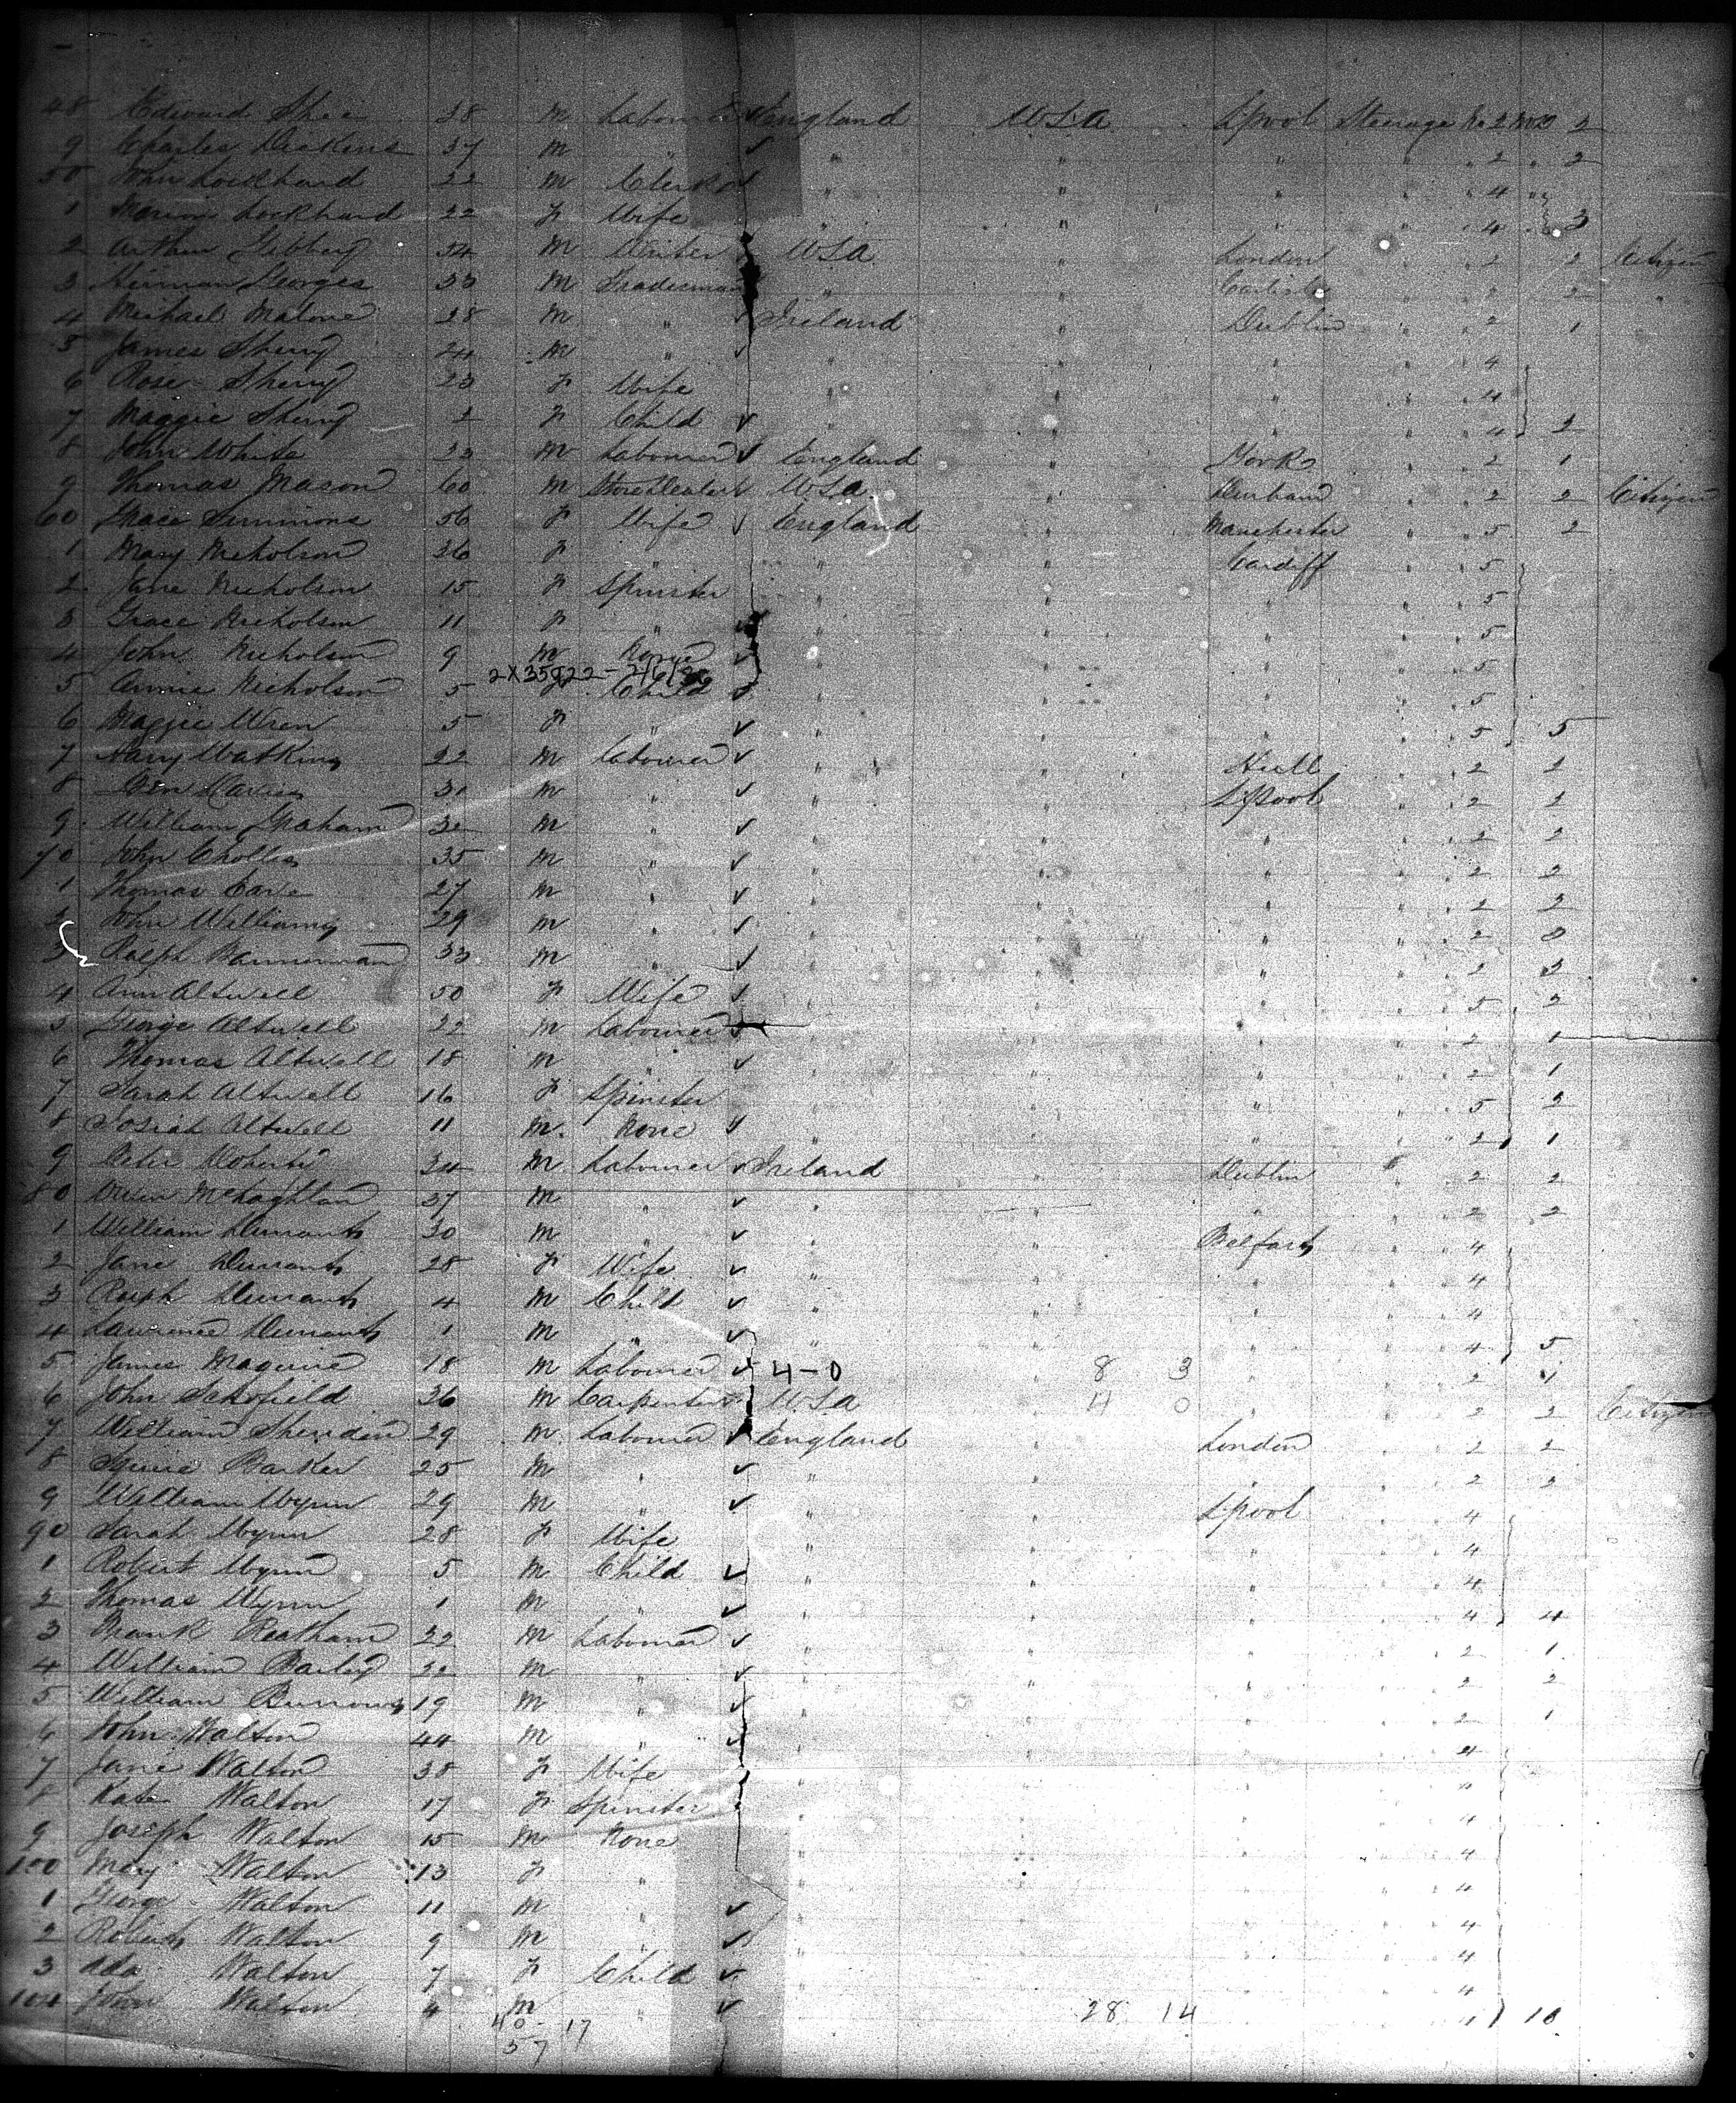 48 Edward 38 m Labourer ✓ England U.S.a L'pool Steerage No 2 2
9 Charles Dickens 37 m " ✓ " " " " " 2 " 2
50 John Lockhard 22 m Clerk ✓ " " " " " 4
1 Lockhard 22 f Wife " " " " " 4 " 3
2 Arthur 34 m U.S.a. " London " 2 2 Citizen
3 Georges 33 m Tradesman " " Carlisle " " 2 "
4 Michael Malone 28 m " ✓ Ireland " Dublin " 2 1
5 James Sherry 24 m " ✓ " " " " " 4
6 Rose Sherry 23 f Wife " " " " " 4
7 Maggie Sherry 2 f Child ✓ " " " " " 4 2
8 John White 32 m Labourer ✓ England " York " 2 1
9 Thomas Mason 60 m ✓ U.S.a. " Durham " 2 2 Citizen
60 Grace Simmons 56 f Wife ✓ England " Manchester " 5 2
1 Mary Nicholson 36 f " " " Cardiff " 5
2 Jane Nicholson 15 f Spinster " " " " " 5
3 Grace Nicholson 11 f " ✓ " " " " " 5
4 John Nicholson 9 m None ✓ " " " " " 5
2X35922 - 2/6/
5 Annie Nicholson 5 f Child ✓ " " " " " 5
6 Maggie Wren 5 f " ✓ " " " " " 5 5
7 Harry Watkins 22 m Labourer ✓ " " Hull " 2 2
8 Davies 31 m " ✓ " " L'pool " 2 2
9 William Graham 32 m " ✓ " " " " " 2 2
70 John 35 m " ✓ " " " " " 2 2
1 Thomas 27 m " ✓ " " " " " 2 2
2 John Williams 29 m " ✓ " " " " " 2
3 Ralph Bannerman 33 m " ✓ " " " " " 2 3
4 Ann Altwell 50 f Wife ✓ " " " " " 5 2
5 George Altwell 22 m Labourer ✓ " " " " " 2 1
6 Thomas Altwell 18 m " ✓ " " " " " 2 1
7 Sarah Altwell 16 f Spinster " " " " " 5 2
8 Josiah Altwell 11 m. None " " " " " " 2 1
9 Peter Doherty 34 m Labourer ✓ Ireland " Dublin " 2 2
80 Owen 37 m " ✓ " " " " " 2 2
1 William Durrant 30 m " ✓ " " Belfast " 4
2 Jane Durrant 28 f Wife ✓ " " " " " 4
3 Ralph Durrant 4 m Child ✓ " " " " " 4
4 Lawrence Durrant 1 m " ✓ " " " " " 4 5
5 James Maguire 18 m Labourer ✓ 4 - 0 8 3 " " 2 1
6 John Schofield 36 m Carpenter ✓ U.S.a 4 0 " " 2 2 Citizen
7 William Sheridan 29 m Labourer ✓ England " London " 2 2
8 Squire Barker 25 m " ✓ " " " " " 2 2
9 William Wynn 29 m " ✓ " " L'pool " 4
90 Sarah Wynn 28 f Wife " " " " " 4
1 Robert Wynn 5 m Child ✓ " " " " " 4
2 Thomas Wynn 1 m " ✓ " " " " " 4 4
3 Frank 22 m Labourer ✓ " " " " " 2 1
4 William Bailey 32 m " ✓ " " " " " 2 2
5 William Burrows 19 m " ✓ " " " " " 2 1
6 John Walton 44 m " ✓ " " " " " 4
7 Jane Walton 38 f Wife " " " " " "
8 Kate Walton 17 f Spinster " " " " " 4
9 Joseph Walton 15 m None " " " " " 4
100 Mary Walton 13 f " " " " " 4
1 George Walton 11 m " ✓ " " " " " 4
2 Robert Walton 9 m " ✓ " " " " " 4
3 Ada Walton 7 f Child ✓ " " " " " 4
104 John Walton 4 m " ✓ 28 14 " " 4 10
40 - 17
57